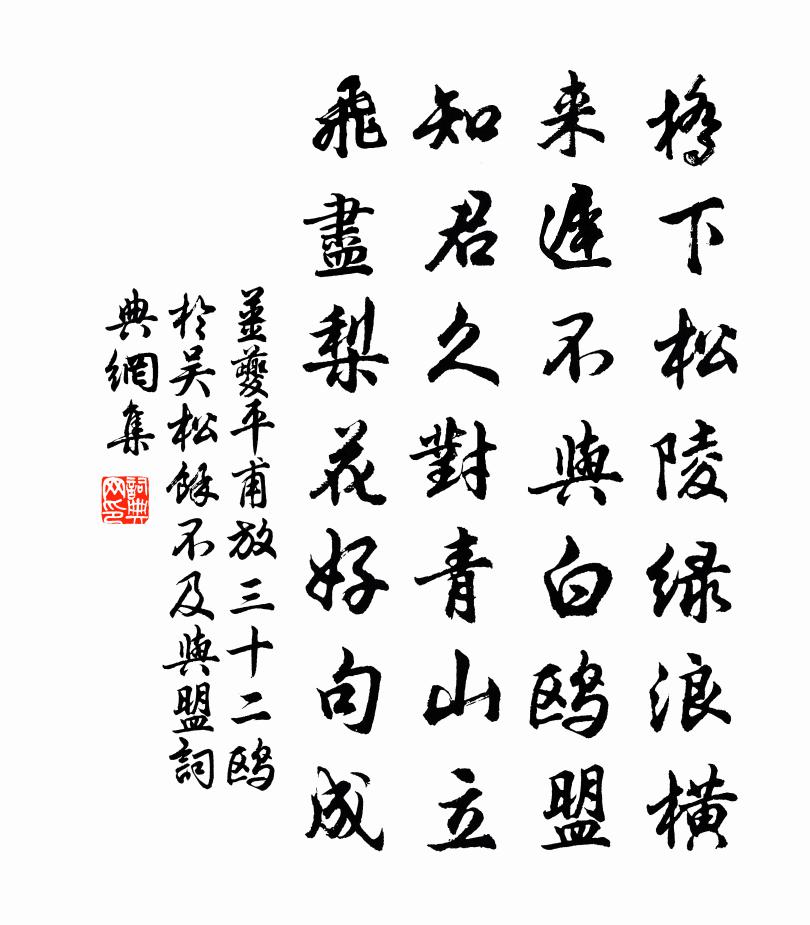 橋下松陵绿浪橫
来遲不與白鷗盟
知君久對青山立
飛盡梨花好句成
姜夔平甫放三十二鷗
於吴松餘不及與盟詞
典網集
詞典网印